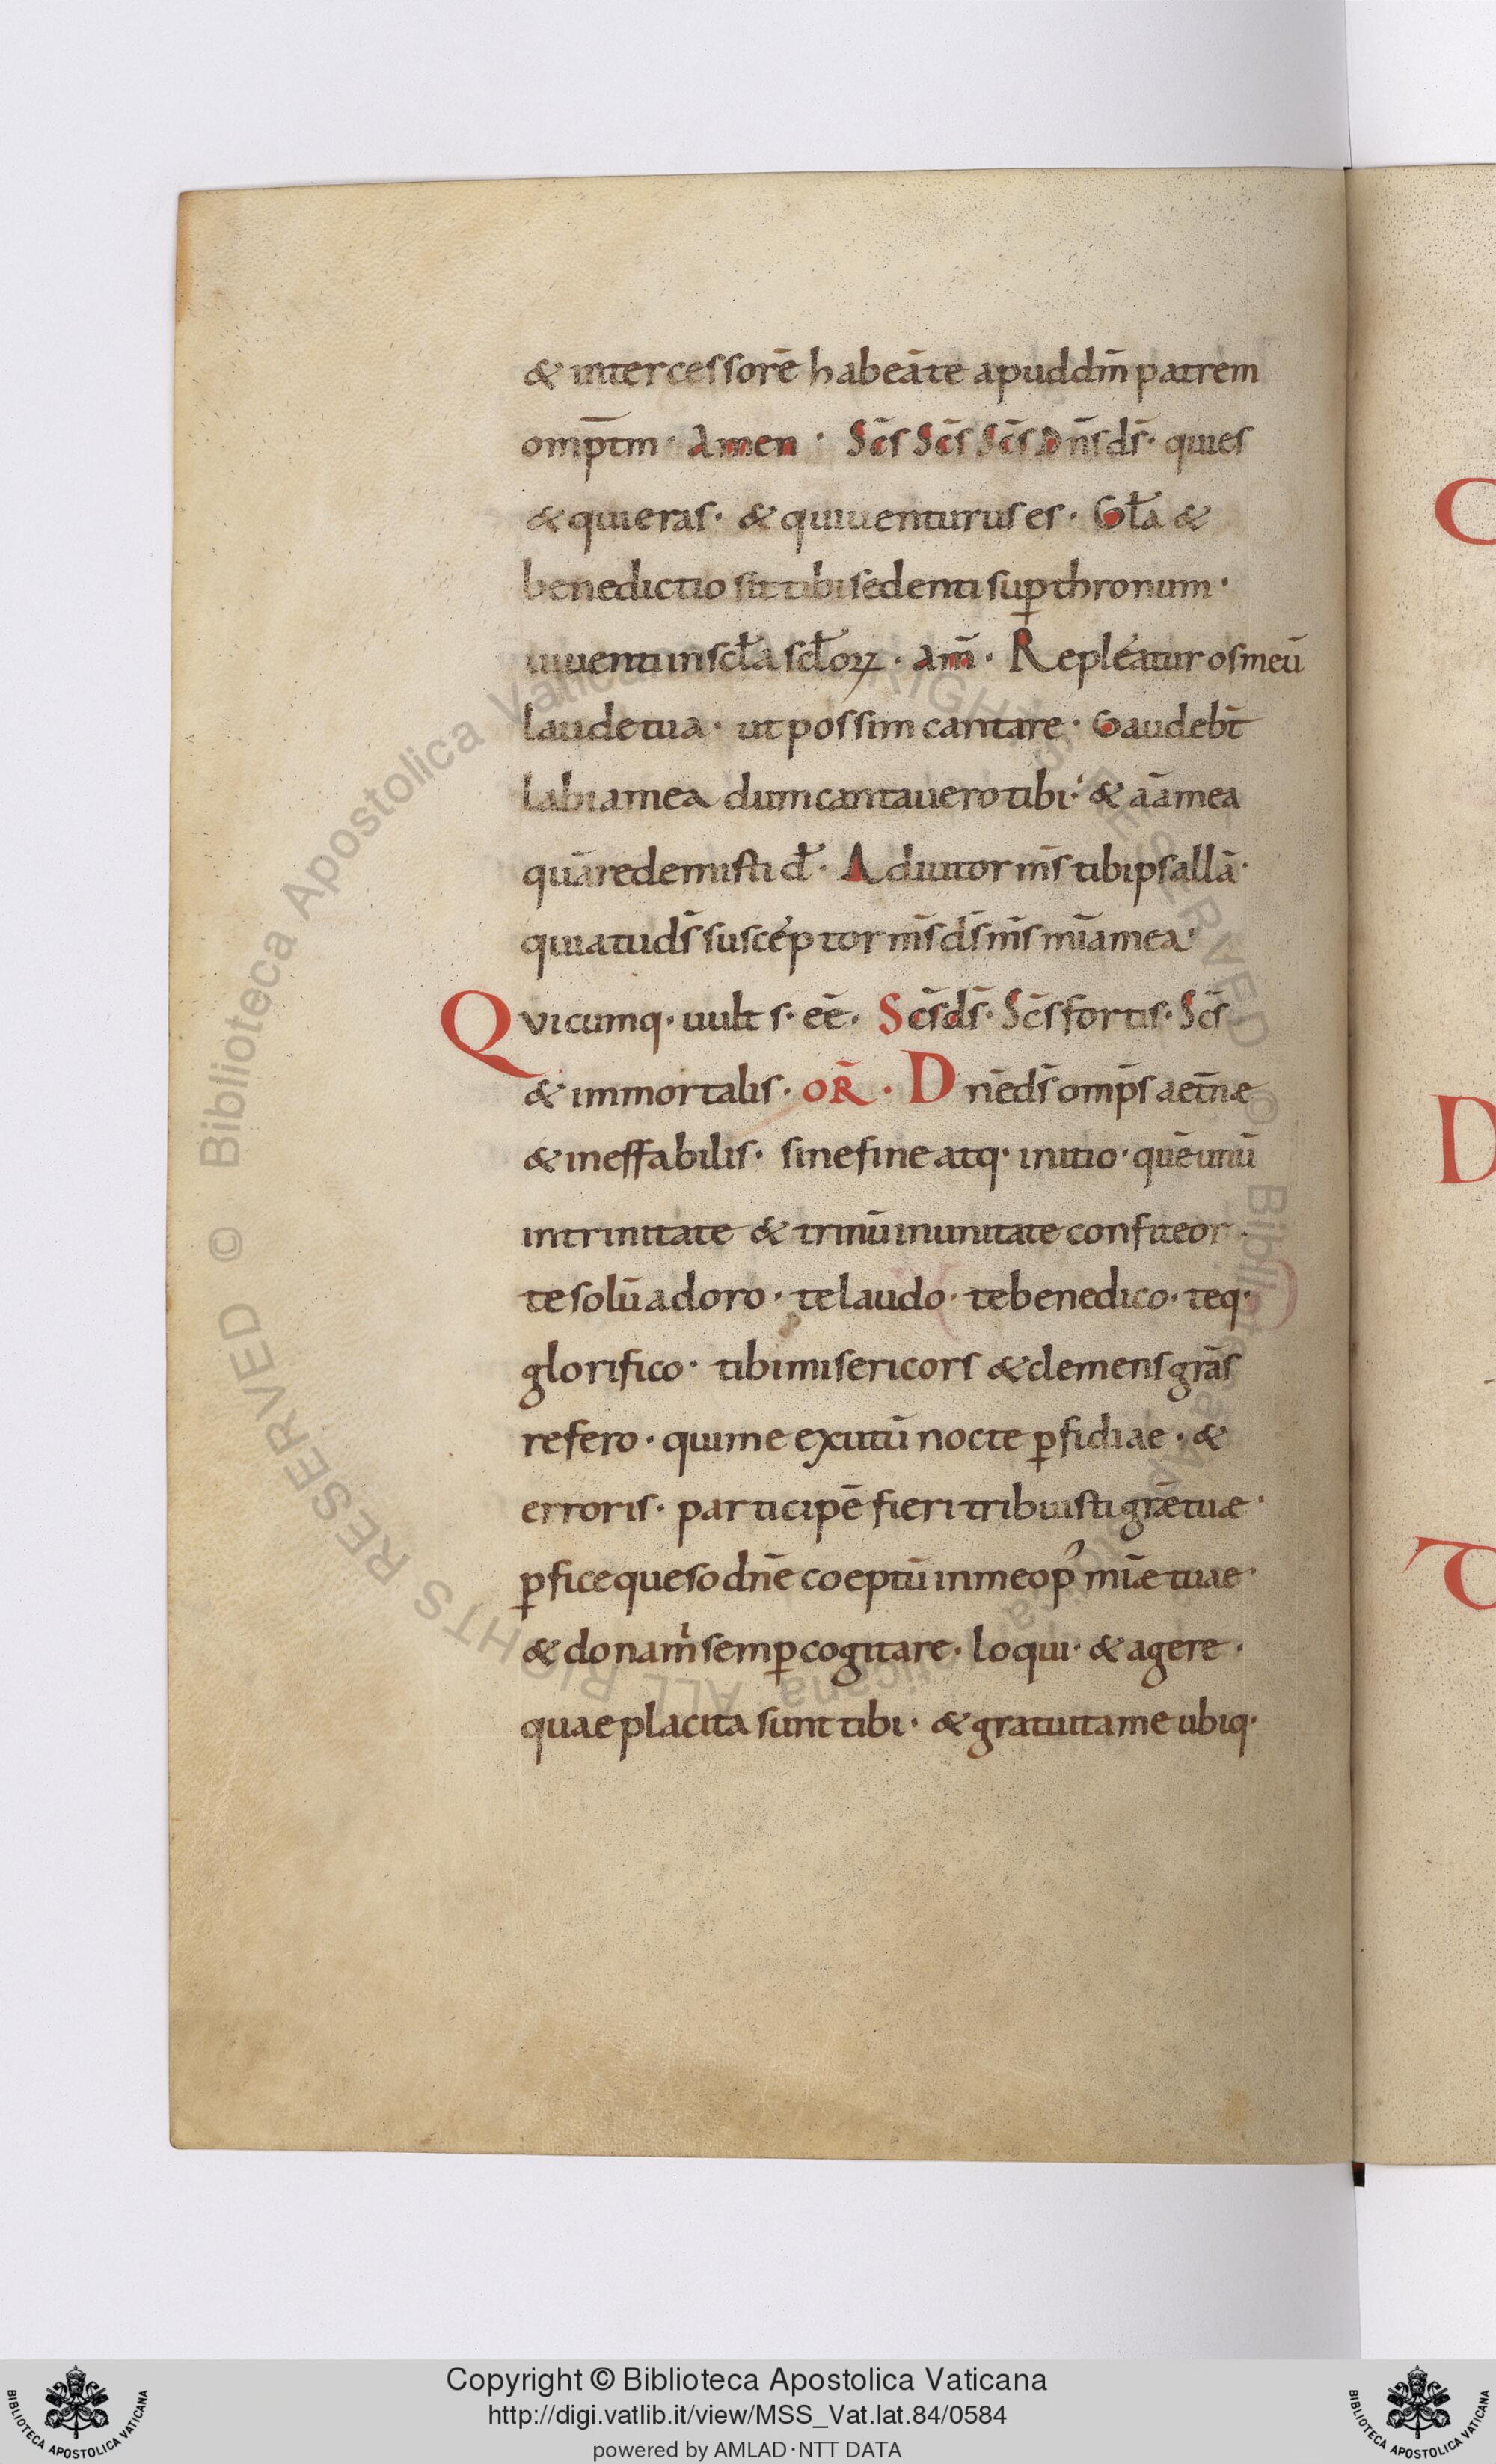 & intercessorē habeāte apud dm̄ patrem
omp̄tm · Amen · Sc̄s Sc̄s Sc̄s Dn̄s ds̄ · qui es
& qui eras · & qui uenturus es · Gl̄a &
benedictio sit tibi sedenti sup̱ thronum ·
uiuenti in scl̄a scl̄oꝝ · Am̄ · Repléatur os meū
laude tua · ut possim cantare · Gaudeb̄t
labia mea dum cantauero tibi · & āa mea
quā redemisti d̄ · Adiutor ms̄ tibi psallā ·
quia tu ds̄ suscéptor ms̄ ds̄ ms̄ mīa mea ·
Quicumq· uult s· eē · Sc̄s ds̄ · Sc̄s fortis · Sc̄s
& immortalis · OR̄ · Dn̄e ds̄ omp̄s aet̄næ
& ineffabilis · sine fine atq· initio · quē unū
in trinitate & trinū in unitate confiteor ·
te solū adoro · te laudo · te benedico · teq·
glorifico · tibi misericors & clemens grās
refero · qui me exutū nocte ꝑfidiae · &
erroris · participē fieri tribuisti grē tuæ ·
ꝑfice queso dn̄e coeptū in me op᾽ mīæ tuae ·
& dona m̍ semꝑ cogitare · loqui · & agere ·
quae placita sunt tibi · & gratuita me ubiq·
C
D
T
© Biblioteca Apostolica Vaticana ALL RIGHTS RESERVED
Copyright © Biblioteca Apostolica Vaticana
http://digi.vatlib.it/view/MSS_Vat.lat.84/0584
powered by AMLAD·NTT DATA
BIBLIOTECA APOSTOLICA VATICANA
BIBLIOTECA APOSTOLICA VATICANA